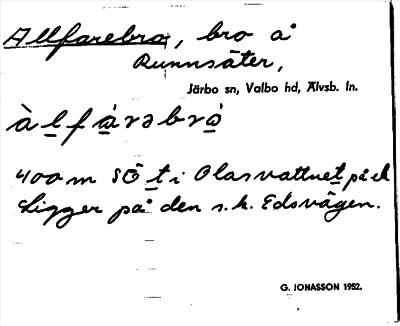 Allfarebro, bro å
Runnsäter,
Järbo sn, Valbo hd, Älvsb. ln.
àlfárəbrò
400 m SÖ t i Olasvattnet på ek
Ligger på den s.k. Edsvägen.
G. JONASSON 1952.